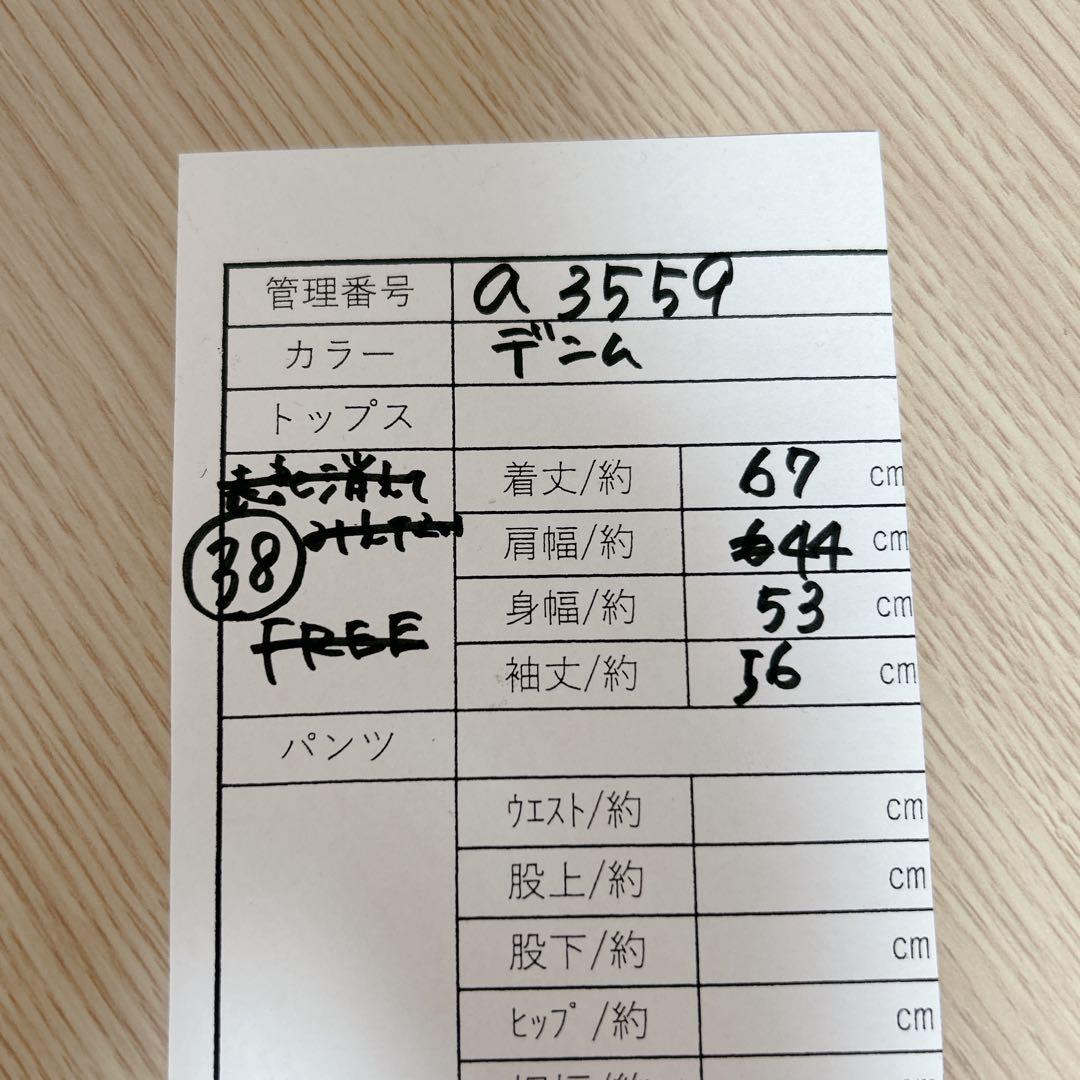 管理番号 a 3559
カラー デニム
トップス
着丈/約 67 cm
38
肩幅/約 44 cm
身幅/約 53 cm
FREE
袖丈/約 56 cm
パンツ
ｳｴｽﾄ/約 cm
股上/約 cm
股下/約 cm
ﾋｯﾌﾟ/約 cm